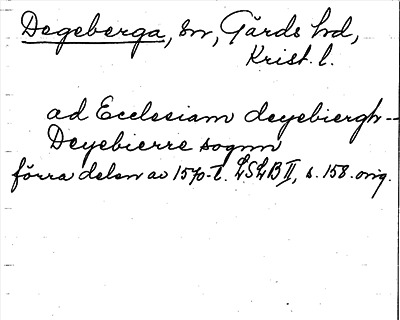 Degeberga, sn, Gärds hd,
Krist. l.
ad Ecclesiam deyebiergh–
Deyebierre sognn
förra delen av 1570-t. LSLB II, s. 158. orig.